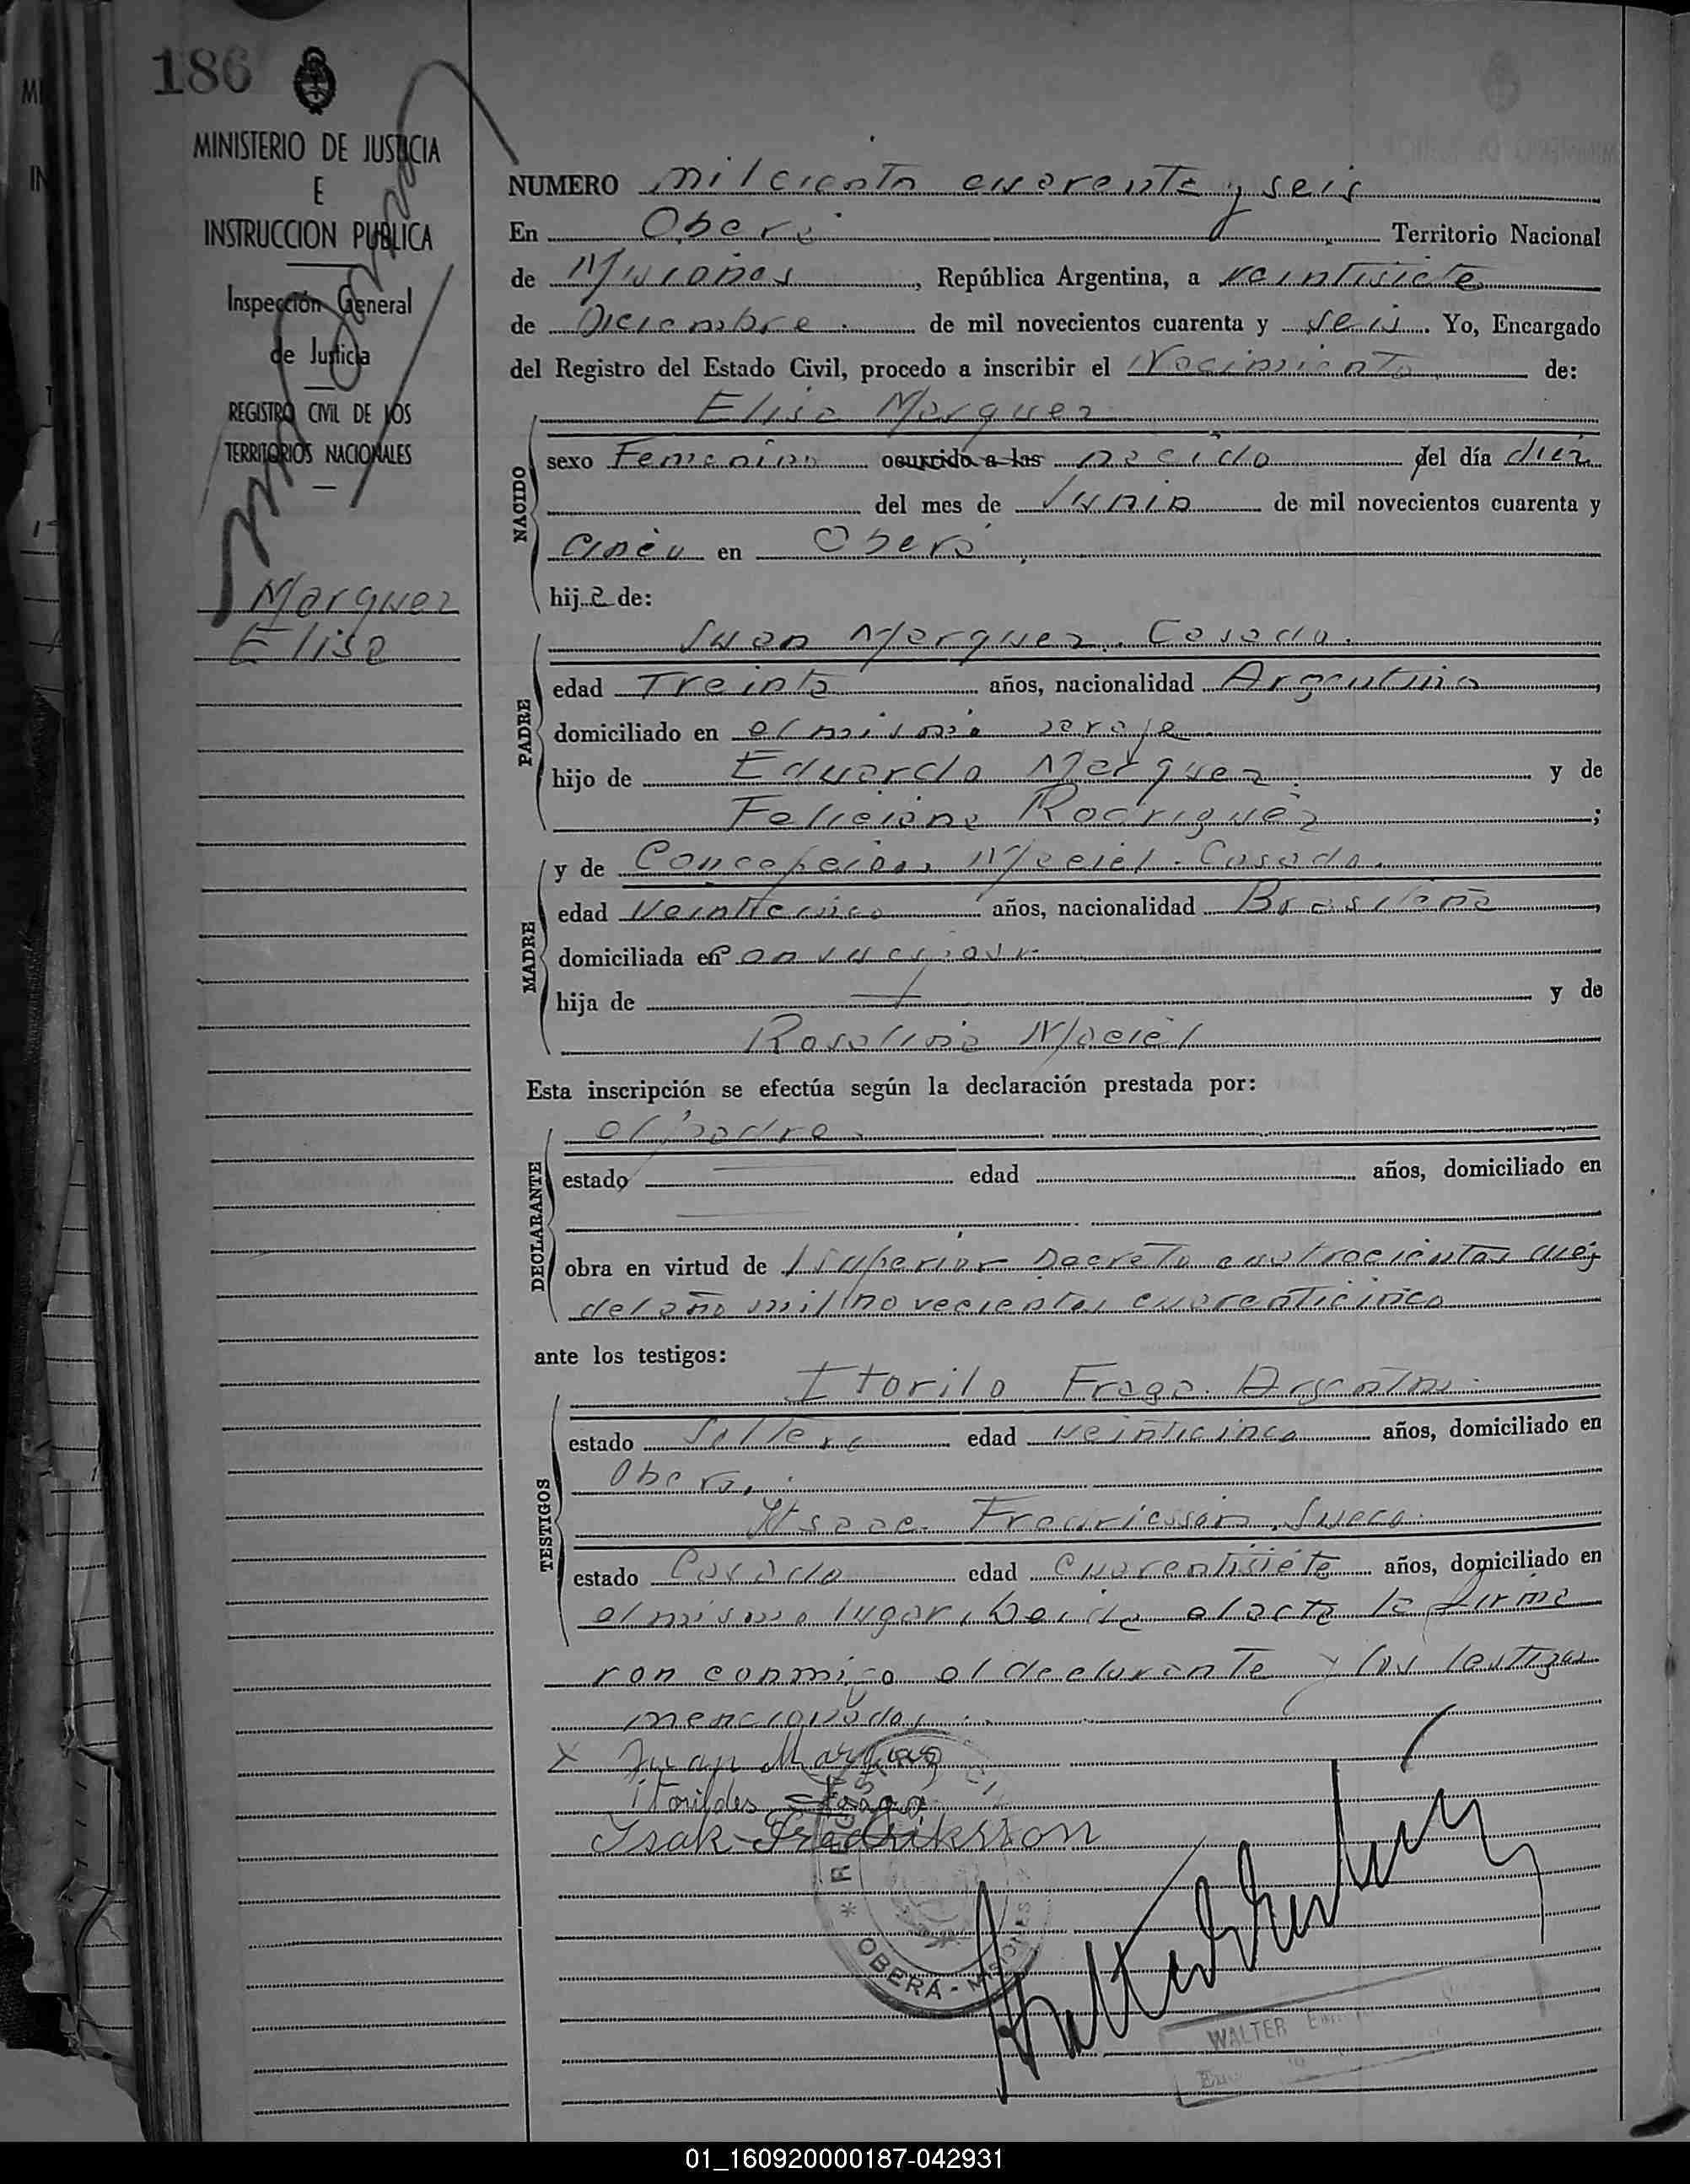 186
MINISTERIO DE JUSTICIA
E
INSTRUCCION PUBLICA
Inspección General
de Justicia
REGISTRO CIVIL DE LOS
TERRITORIOS NACIONALES
Marquez
Elisa
NUMERO mil ciento cuarenta y seis
En Oberá Territorio Nacional
de Misiones, República Argentina, a veintisiete
de Diciembre de mil novecientos cuarenta y seis. Yo, Encargado
del Registro del Estado Civil, procedo a inscribir el Nacimiento de:
Elisa Marquez
NACIDO
sexo Femenino ocurrido a las nacida del día diez
del mes de Junio de mil novecientos cuarenta y
cinco en Oberá
hija de:
PADRE
Juan Marquez. Casado.
edad Treinta años, nacionalidad Argentino,
domiciliado en el mismo paraje
hijo de Eduardo Marquez y de
Feliciana Rodriguez;
MADRE
y de Concepcion Maciel. Casada.
edad Veinticinco años, nacionalidad Brasileña,
domiciliada en
hija de y de
Rosalina Maciel
Esta inscripción se efectúa según la declaración prestada por:
DECLARANTE
el padre
estado edad años, domiciliado en
obra en virtud de Superior Decreto cuatrocientos diez
del año mil novecientos cuarenticinco
ante los testigos:
TESTIGOS
Itorilo Fraga. Argentino.
estado Soltero edad veinticinco años, domiciliado en
Oberá,
Isaac Fredricsson, Sueco.
estado Casado edad cuarentisiete años, domiciliado en
el mismo lugar, leida el acta la firma
ron conmigo el declarante y los testigos
mencionados.
X Juan Marquez
Itorildes Fraga
Isak Fredriksson
OBERÁ - MISIONES
WALTER
01_160920000187-042931